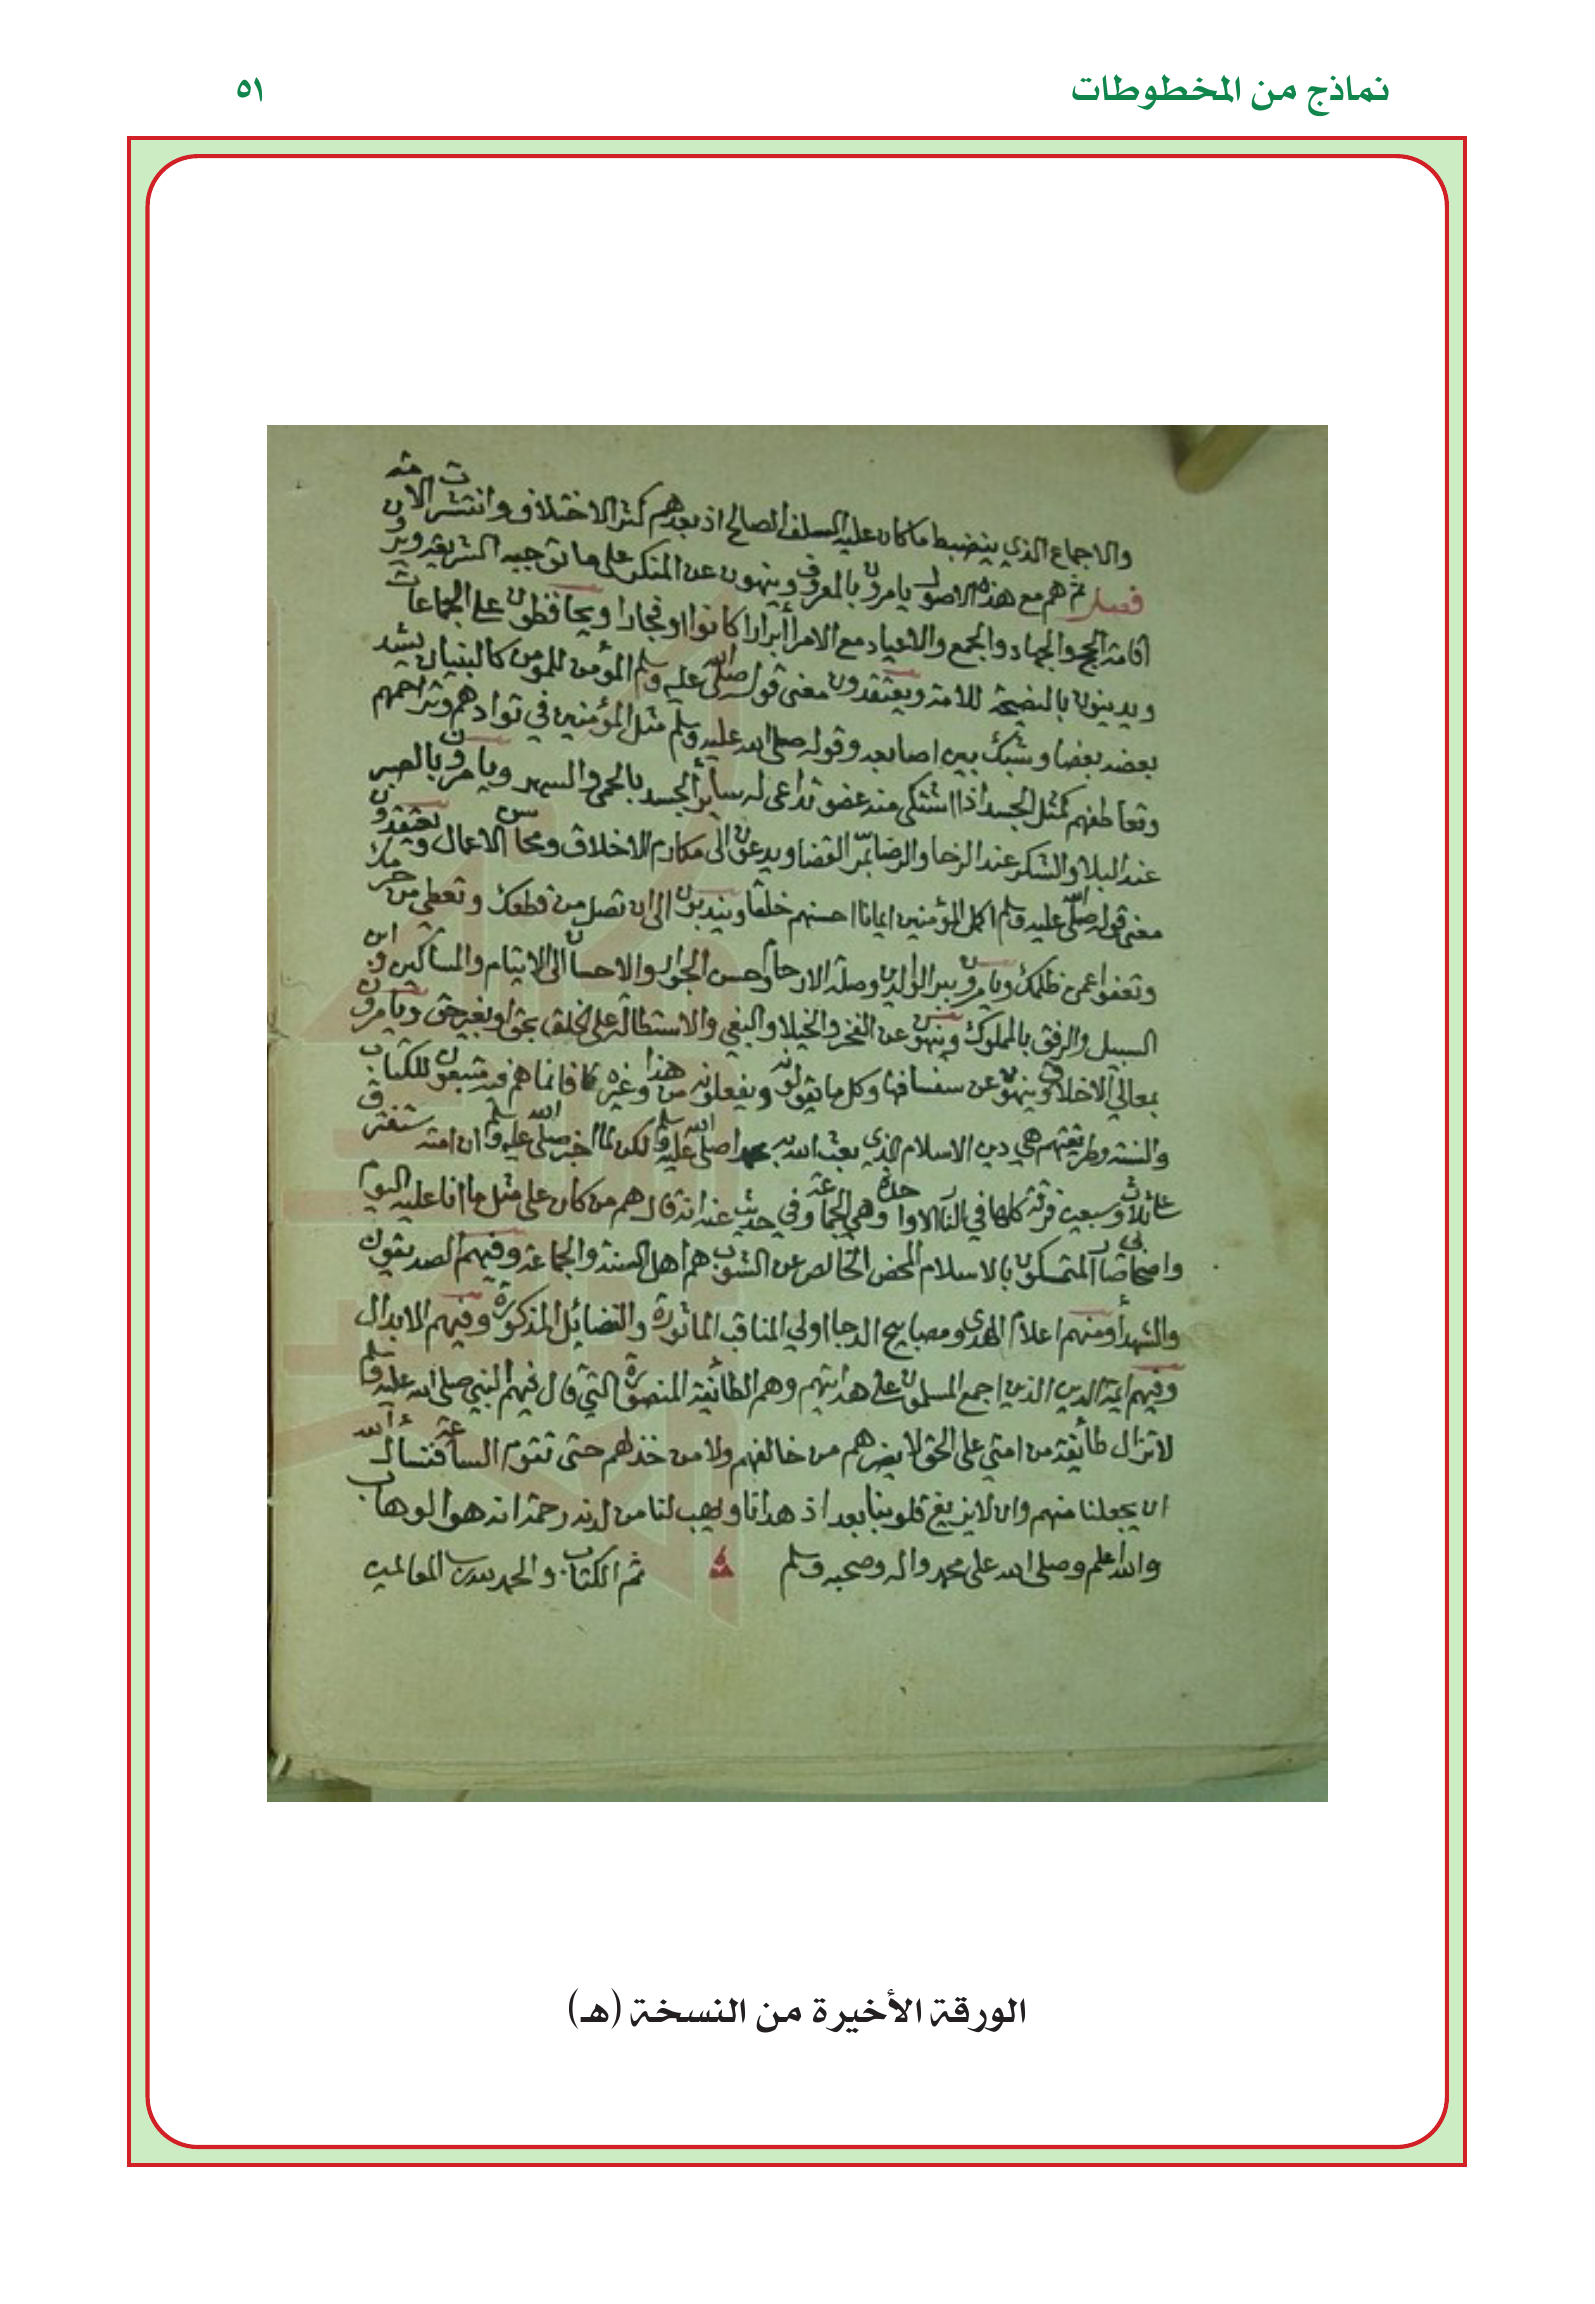 نماذج من المخطوطات
٥١
والاجماع الذي ينضبط ما كان عليه السلف الصالح اذ بعدهم كثر الاختلاف وانتشرت الامة
فصل ثم هم مع هذه الاصول يامرون بالمعروف وينهون عن المنكر على ما توجبه الشريعة ويرون
اقامة الحج والجهاد والجمع والاعياد مع الامرأ أبرارا كانوا او فجارا ويحافظون على الجماعات
ويدينون بالنصيحة للامة ويعتقدون معنى قوله صلى الله عليه وسلم المؤمن للمومن كالبنيان يشد
بعضه بعضا وشبك بين اصابعه وقوله صلى الله عليه وسلم مثل المؤمنين في توادهم وتراحمهم
وتعاطفهم كمثل الجسد اذا اشتكى منه عضو تداعى له سائر الجسد بالحمى والسهر ويامرون بالصبر
عند البلا والشكر عند الرخا والرضا بمر القضا ويدعون الى مكارم الاخلاق ومحاسن الاعمال ويعتقدون
معنى قوله صلى الله عليه وسلم اكمل المؤمنين ايمانا احسنهم خلقا ويندبون الى ان تصل من قطعك وتعطي من حرمك
وتعفوا عمن ظلمك ويامرون ببر الوالدين وصلة الارحام وحسن الجوار والاحسان الى الايتام والمساكين وابن
السبيل والرفق بالمملوك وينهون عن الفخر والخيلا والبغي والاستطالة على الخلق بحق او بغير حق ويامرون
بمعالي الاخلاق وينهون عن سفسافها وكل ما يقولونه ويفعلونه من هذا وغيره فانما هم فيه متبعون للكتاب
والسنة وطريقتهم هي دين الاسلام الذي بعث الله به محمدا صلى الله عليه وسلم لكن لما اخبر صلى الله عليه وسلم ان امته ستفترق
على ثلاث وسبعين فرقة كلها في النار الا واحدة وهي الجماعة وفي حديث عنه انه قال هم من كان على مثل ما انا عليه اليوم
واصحابي صار المتمسكون بالاسلام المحض الخالص عن الشوب هم اهل السنة والجماعة وفيهم الصديقون
والشهدأ ومنهم اعلام الهدى ومصابيح الدجا اولي المناقب الماثورة والفضائل المذكورة وفيهم الابدال
وفيهم ايمة الدين الذين اجمع المسلمون على هدايتهم وهم الطائفة المنصورة التي قال فيهم النبي صلى الله عليه وسلم
لا تزال طائفة من امتي على الحق لا يضرهم من خالفهم ولا من خذلهم حتى تقوم الساعة فنسأل الله
ان يجعلنا منهم وان لا يزيغ قلوبنا بعد اذ هدانا ويهب لنا من لدنه رحمة انه هو الوهاب
والله اعلم وصلى الله على محمد واله وصحبه وسلم تم الكتاب والحمد لله رب العالمين
الورقة الأخيرة من النسخة (هـ)